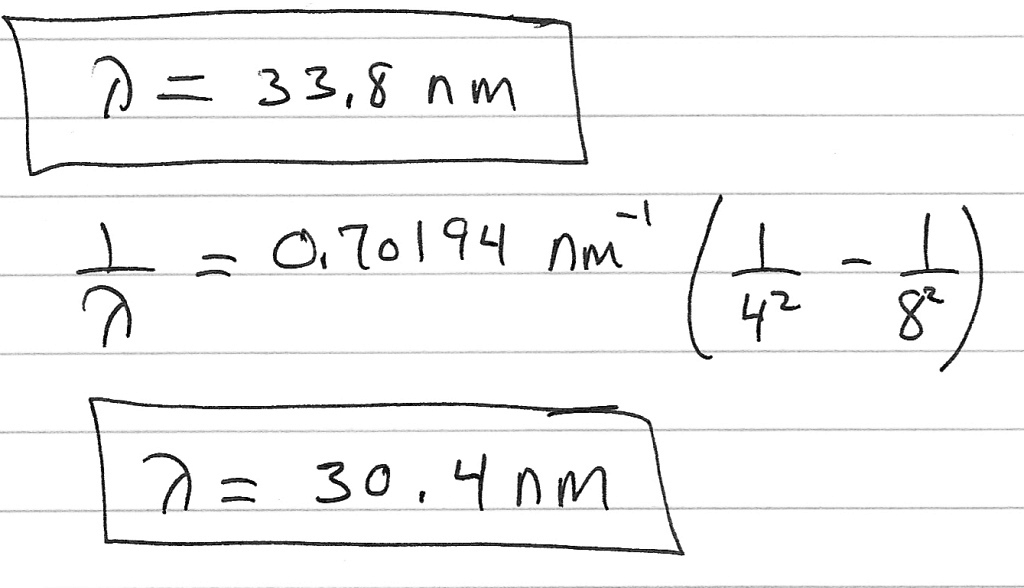 λ = 33.8 nm
1/λ = 0.70194 nm⁻¹ (1/4² - 1/8²)
λ = 30.4 nm